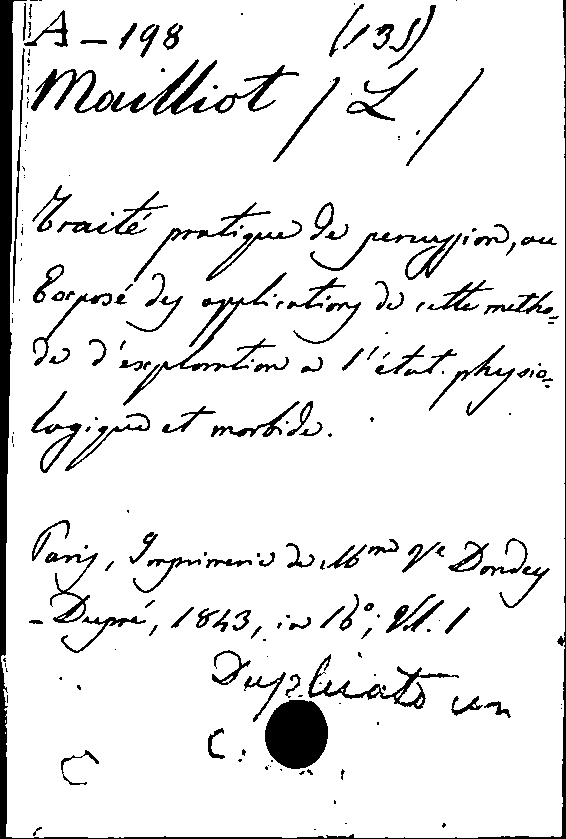 A-198 (135)
Mailliot (L.)
Traité pratique de percussion, ou
Exposé des applications de cette métho-
de d'exploration a l'état physio-
logique et morbide.
Paris, Imprimerie de Mme Ve Dondey
-Dupré, 1843, in 16º; Vl. 1
Duplicato
C